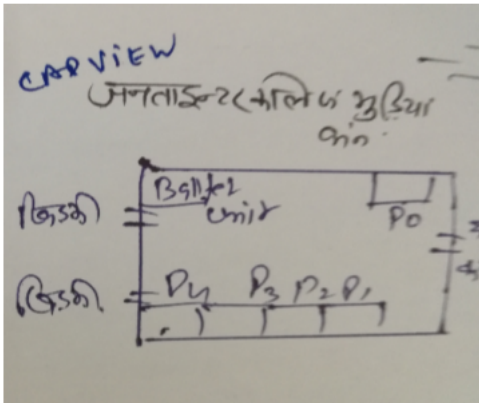 CAP VIEW
जनता इन्टर कालेज मुड़िया
Ballot
unit
P0
खिडकी
खिडकी
P4 P3 P2 P1